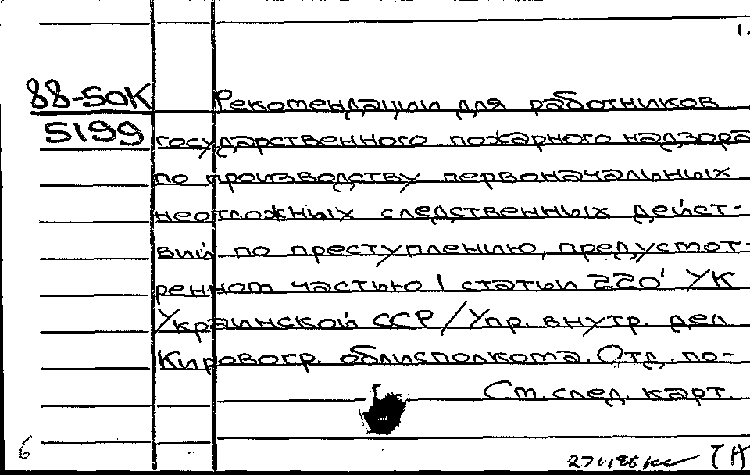 1.
88-50К Рекомендации для работников
5199 государственного пожарного надзора
по производству первоначальных
неотложных следственных дейст-
вий по преступлению, предусмот-
ренном частью 1 статьи 220' УК
Украинской ССР/Упр. внутр. дел
Кировогр. облисполкома. Отд. по-
См. след. карт.
6